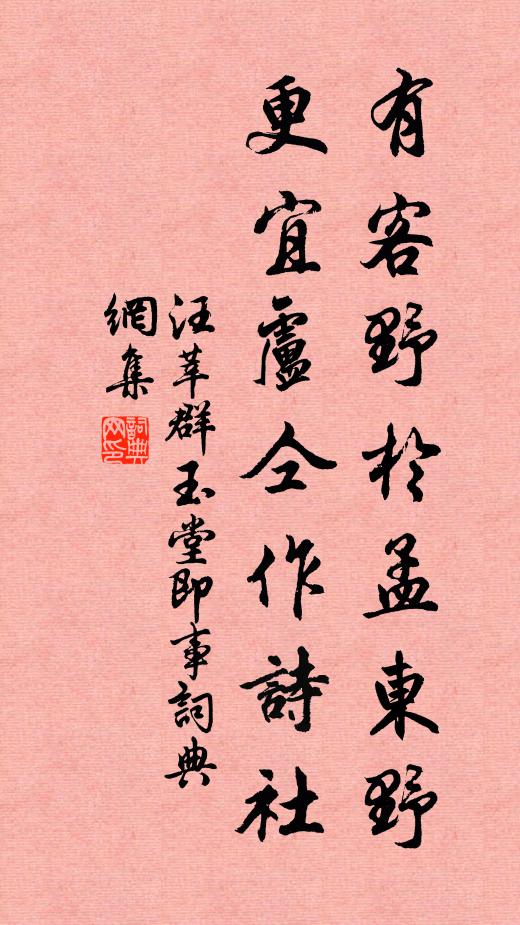 有客野於孟東野
更宜盧仝作詩社
汪莘群玉堂即事詞典
網集
詞典
网印